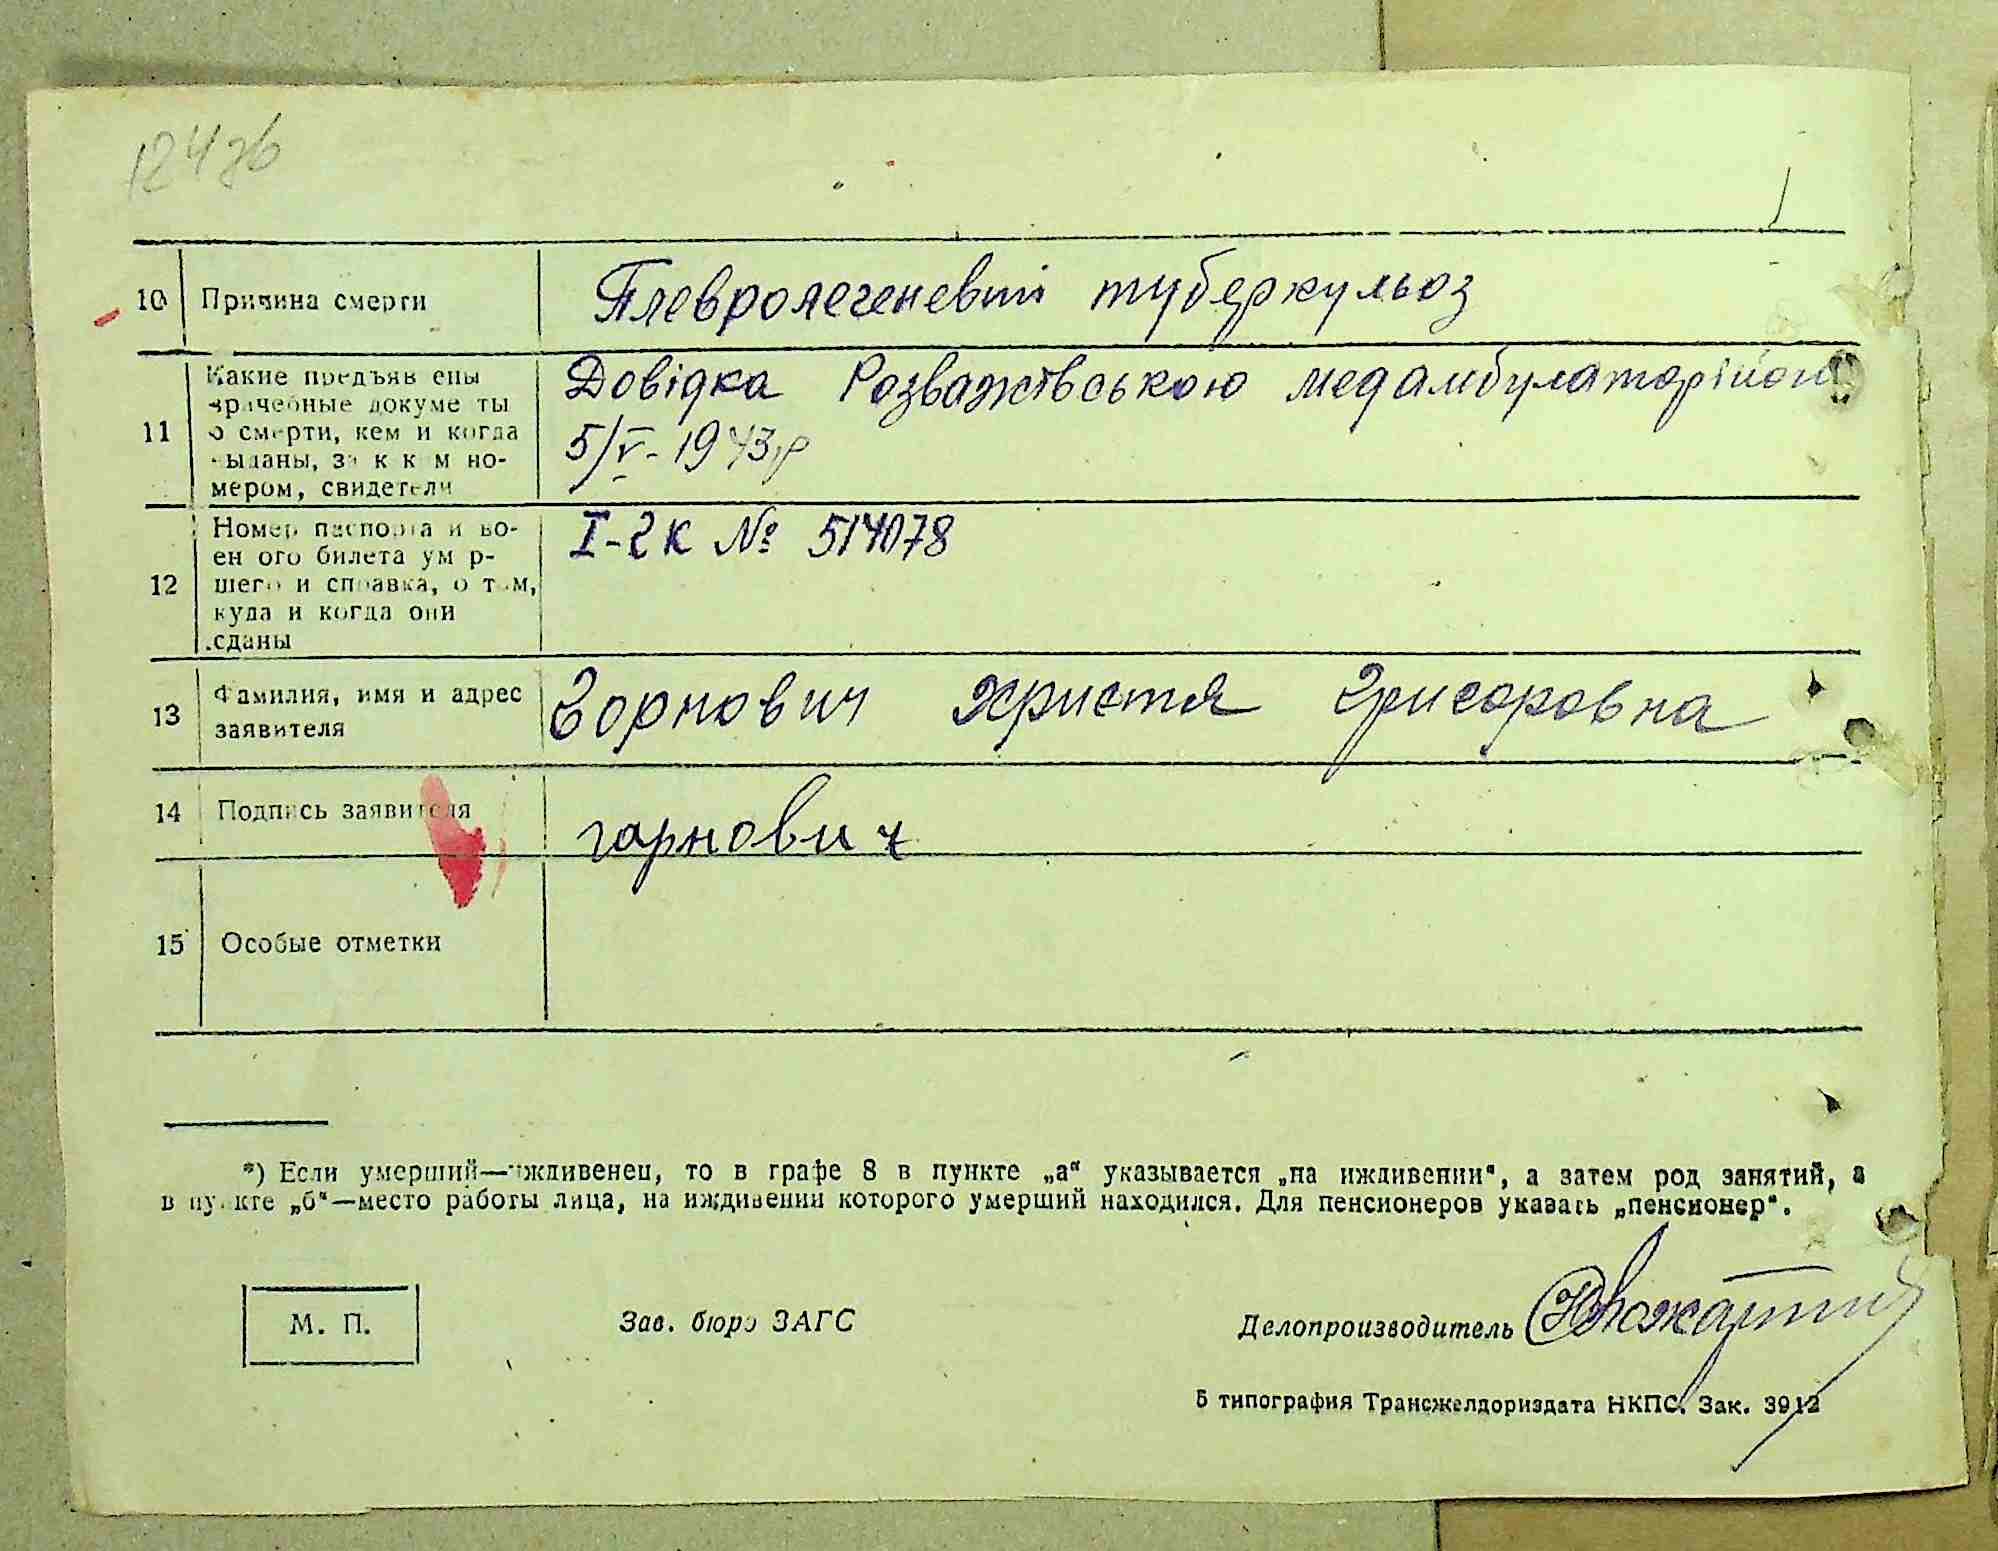 124зв
10 Причина смерти Плевролегеневий туберкульоз
11 Какие предъяв ены
врачебные докуме ты
о смерти, кем и когда
выданы, за к к м но-
мером, свидетели
Довідка Розважівською медамбулаторією
5/V - 1943 р
12 Номер паспорта и во-
ен ого билета ум р-
шего и справка, о т м,
куда и когда они
сданы
I-гк № 514078
13 Фамилия, имя и адрес
заявителя
Горнович Христя Григоровна
14 Подпись заявителя горнович
15 Особые отметки
*) Если умерший—иждивенец, то в графе 8 в пункте „а“ указывается „на иждивении“, а затем род занятий, а
в пункте „б“—место работы лица, на иждивении которого умерший находился. Для пенсионеров указать „пенсионер“.
М. П.
Зав. бюро ЗАГС
Делопроизводитель
5 типография Трансжелдориздата НКПС. Зак. 3912